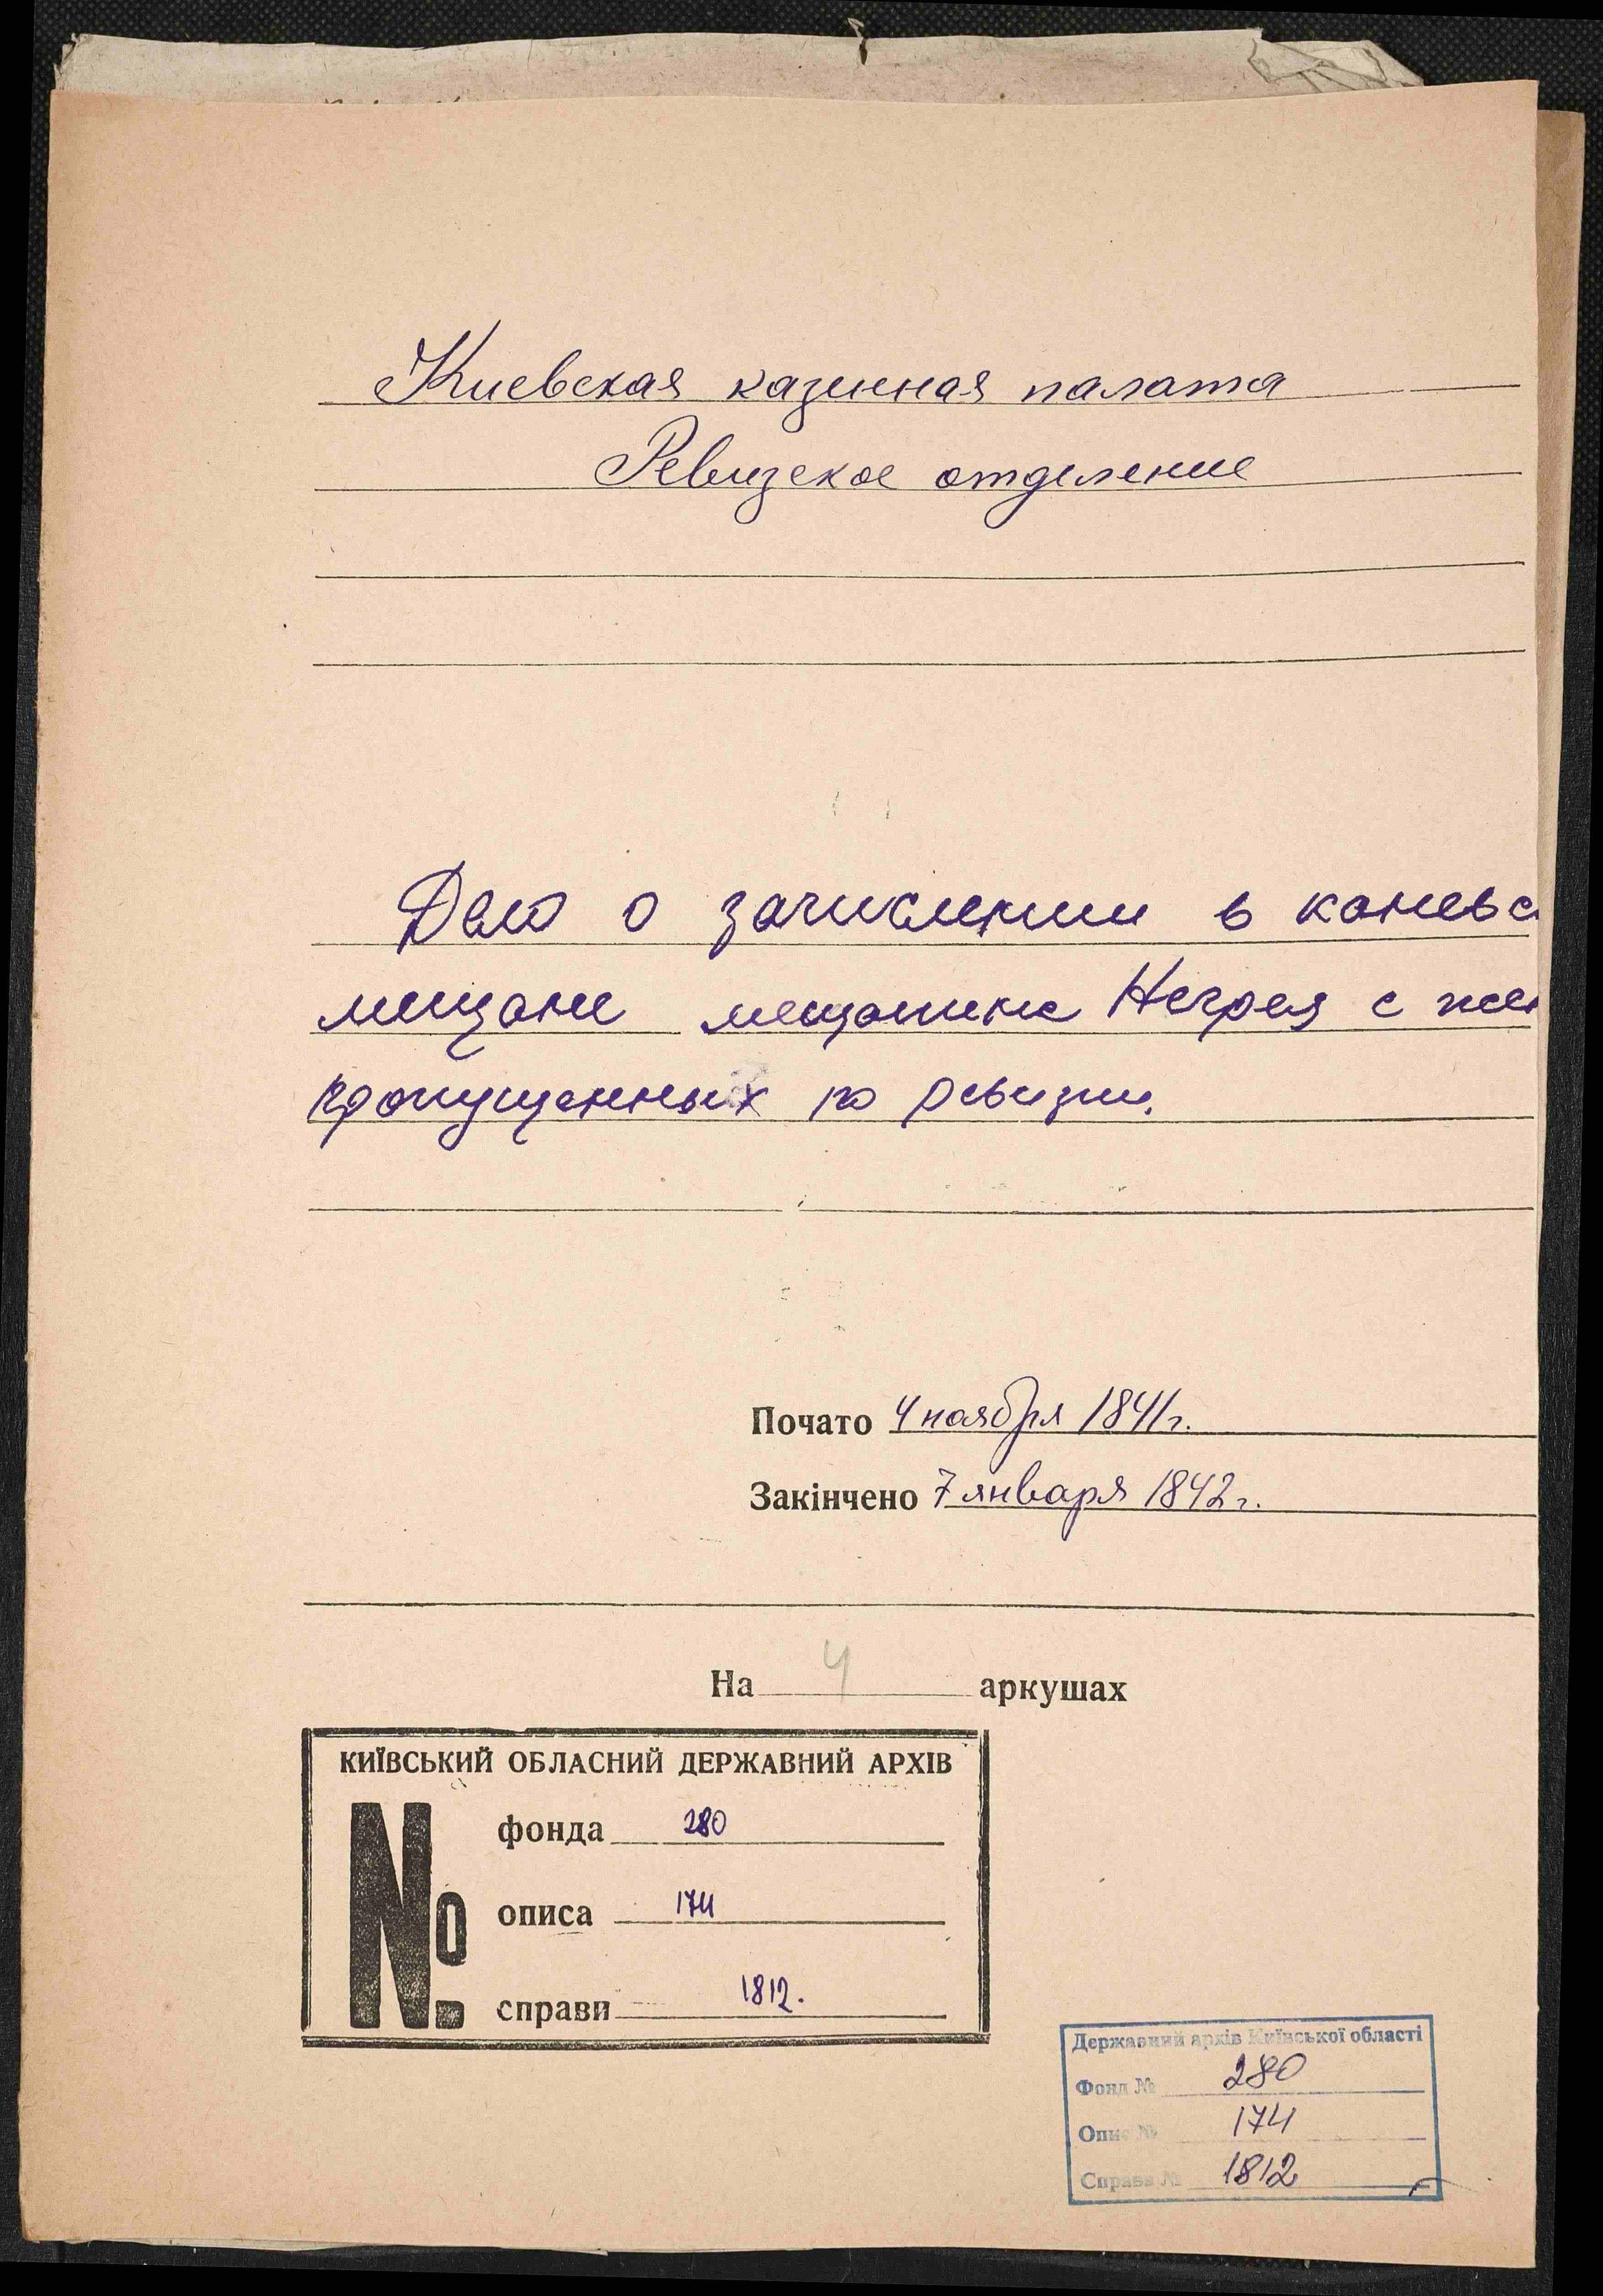 Киевская казенная палата
Ревизское отделение
Дело о зачислении в каневс
мещане мещанина Негрея с жен
пропущенных по ревизии.
Почато 4 ноября 1841 г.
Закінчено 7 января 1842 г.
На 4 аркушах
КИЇВСЬКИЙ ОБЛАСНИЙ ДЕРЖАВНИЙ АРХІВ
№
фонда 280
описа 174
справи 1812.
Державний архів Київської області
Фонд № 280
Опис № 174
Справа № 1812